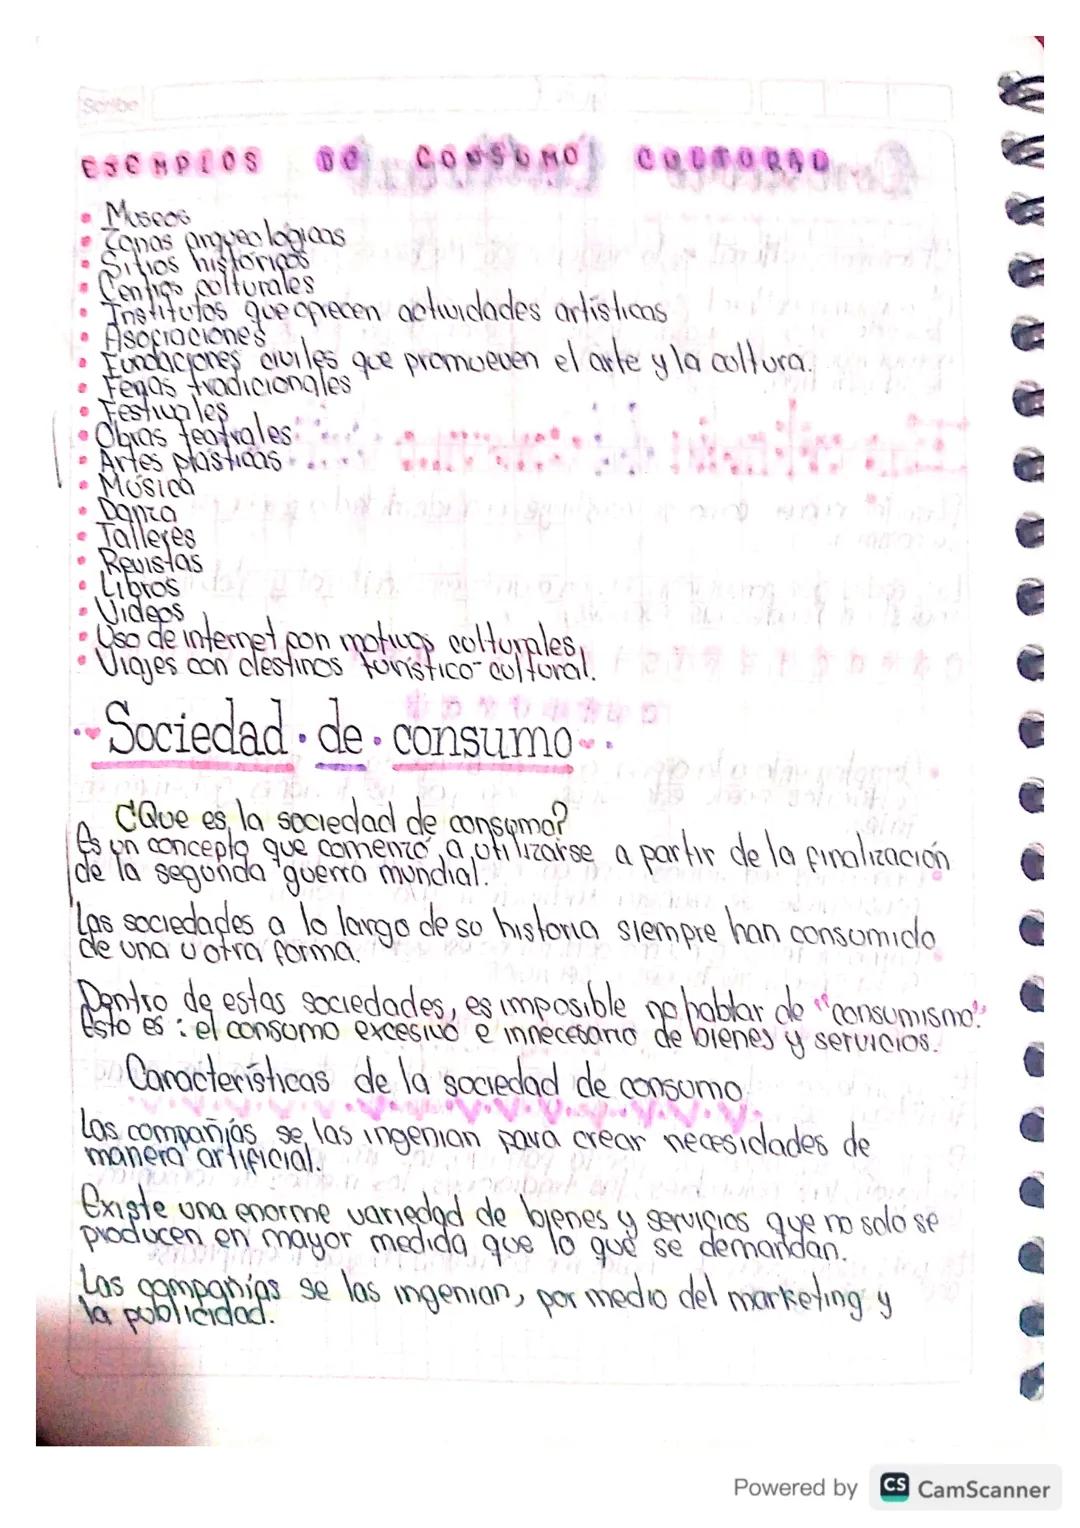 Scribe
EJEMPLOS DE CONSUMO CULTURAL
• Museos
• Zonas arqueologicas
• Sitios históricos
• Centros culturales
• Institutos que ofrecen actividades artísticas
• Asociaciones
• Fundaciones civiles que promueven el arte y la cultura.
• Ferias tradicionales
• Festivales
• Obras teatrales
• Artes plasticas
• Música
• Danza
• Talleres
• Revistas
• Libros
• Videos
• Uso de internet con motivos culturales,
• Viajes con destinos turístico-cultural.
Sociedad de consumo
¿Que es la sociedad de consumo?
Es un concepto que comenzó a utilizarse a partir de la finalización
de la segunda guerra mundial.
Las sociedades a lo largo de su historia siempre han consumido
de una u otra forma.
Dentro de estas sociedades, es imposible no hablar de "consumismo".
Esto es: el consumo excesivo e innecesario de bienes y servicios.
Características de la sociedad de consumo
Las compañías se las ingenian para crear necesidades de
manera artificial.
Existe una enorme variedad de bienes y servicios que no solo se
producen en mayor medida que lo que se demandan.
Las compañías se las ingenian, por medio del marketing y
la publicidad.
Powered by CS CamScanner